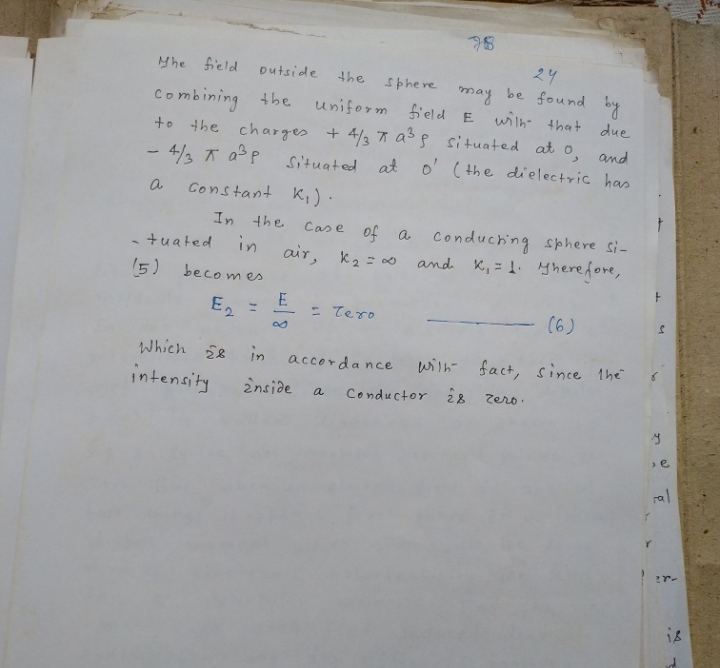 24
The field outside the sphere may be found by
combining the uniform field E with that due
to the charges + 4/3 π a³ρ situated at O, and
- 4/3 π a³ρ situated at O' (the dielectric has
a constant K₁).
In the case of a conducting sphere si-
-tuated in air, K₂ = ∞ and K₁ = 1. Therefore,
(5) becomes
E₂ = E/∞ = Zero (6)
Which is in accordance with fact, since the
intensity inside a conductor is zero.
ral
er-
is